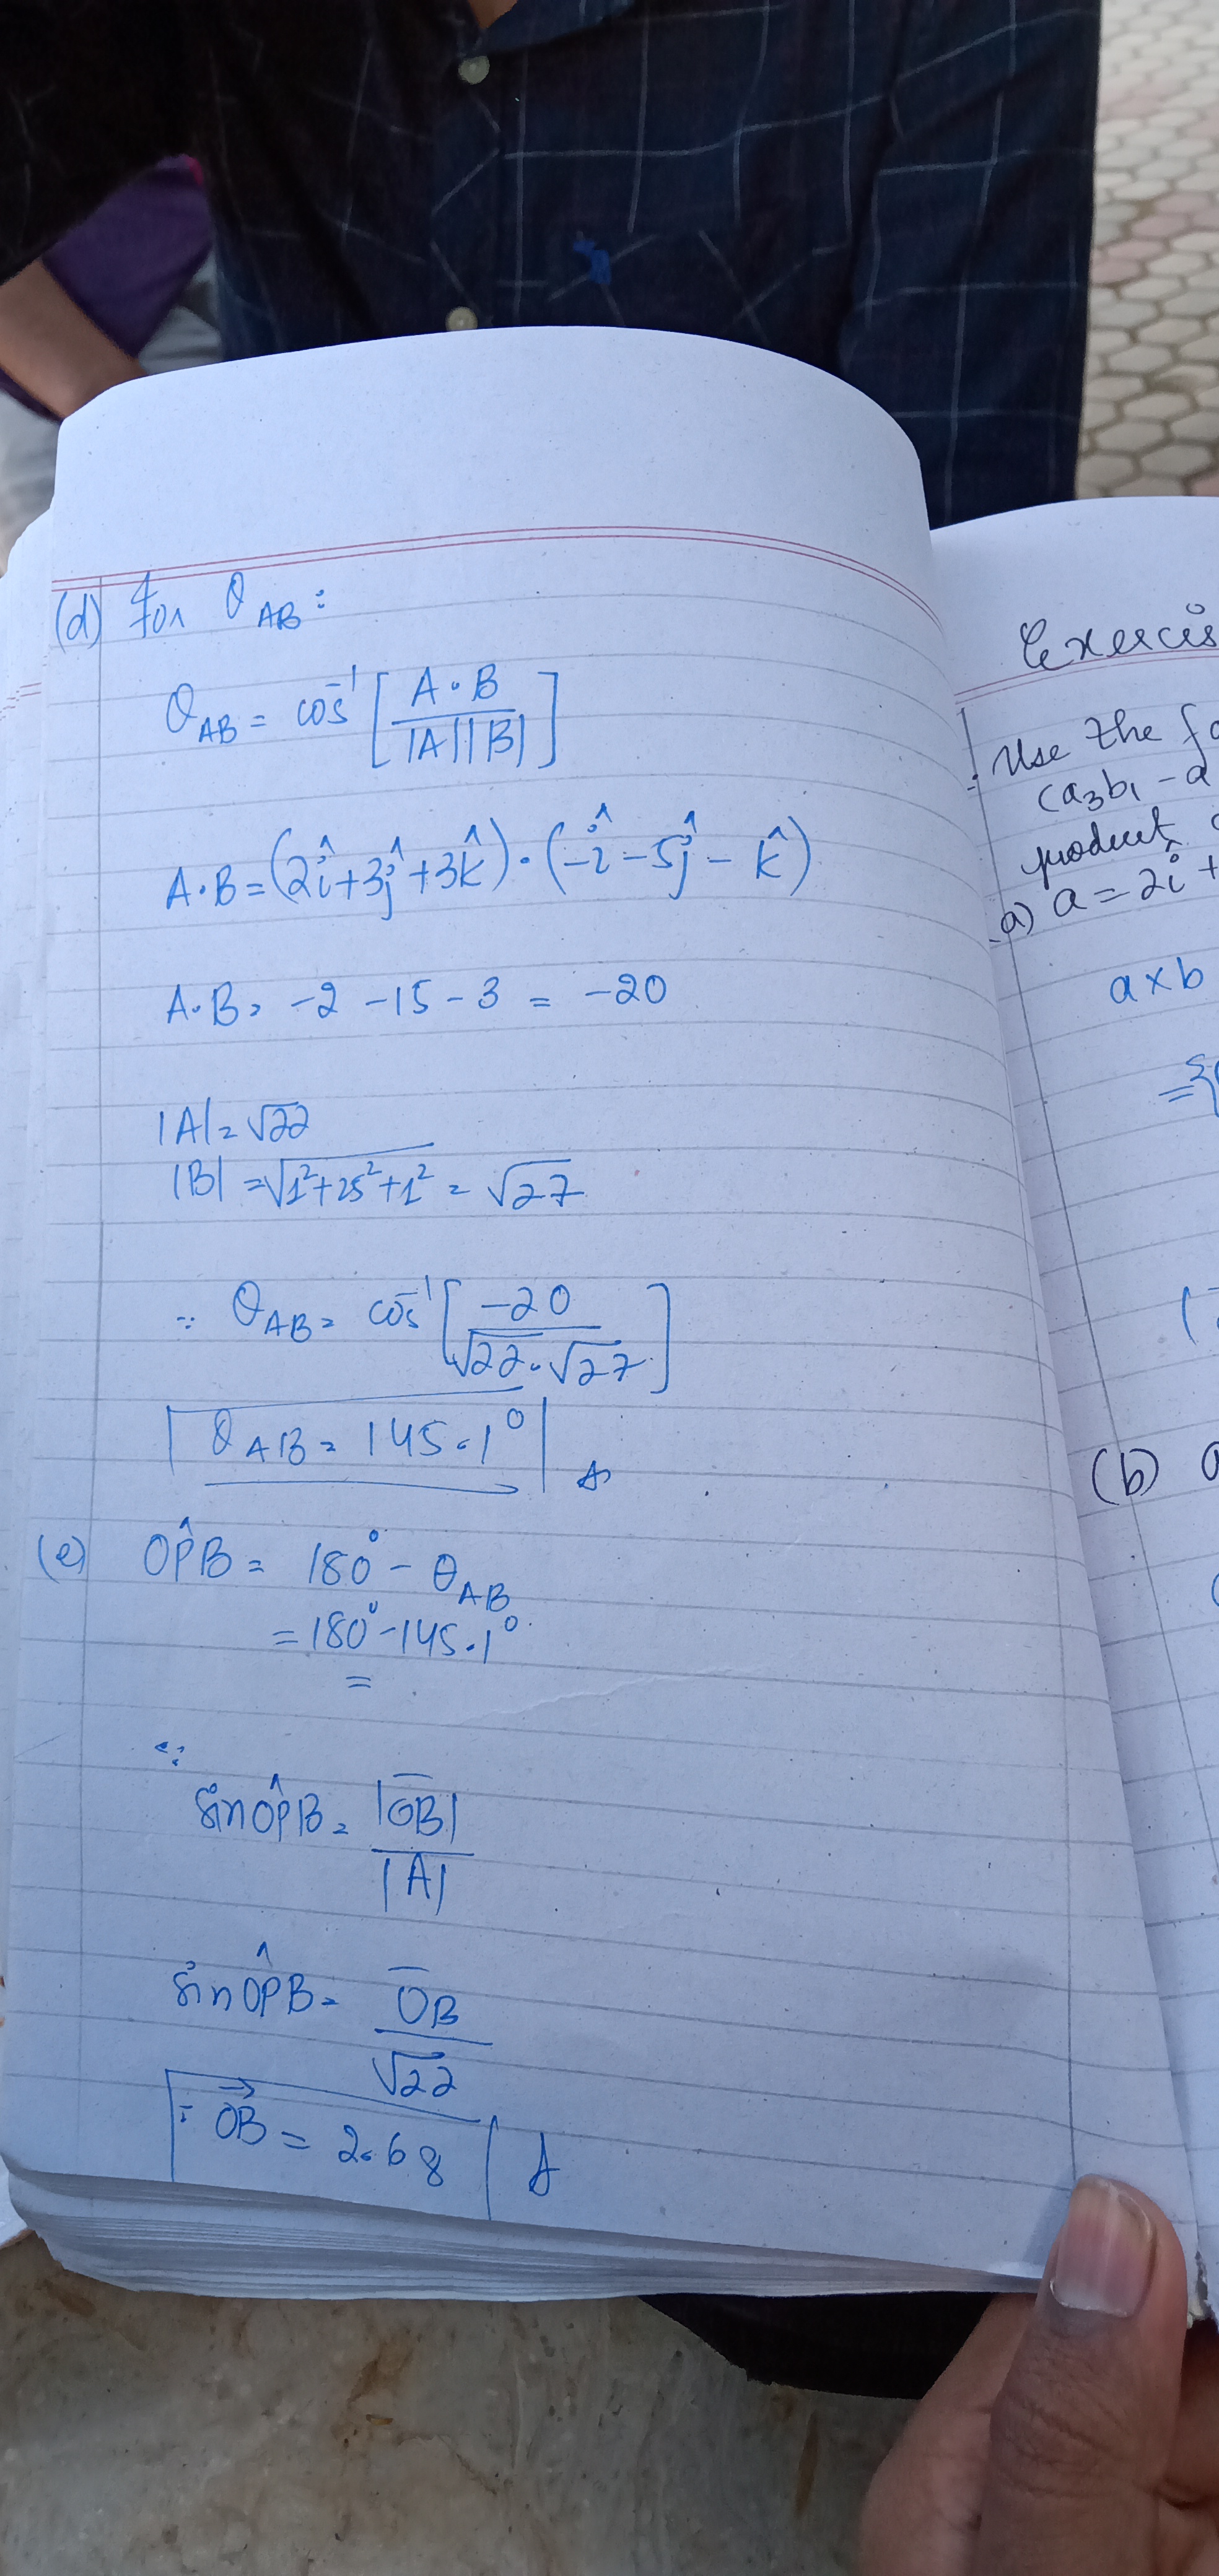 (d) for θ AB :
θ AB = cos⁻¹ [ A·B / |A||B| ]
A·B = (2î+3ĵ+3k̂)·(-î-5ĵ-k̂)
A·B = -2 -15 - 3 = -20
|A| = √22
|B| = √1²+25²+1² = √27
∴ θ AB = cos⁻¹ [ -20 / √22·√27 ]
θ AB = 145.1°
(e) OP̂B = 180° - θ AB
= 180° - 145.1°
=
∴
sin OP̂B = |OB| / |A|
sin OP̂B = OB / √22
∴ OB = 2.68
Exercis
Use the fo
(a₃b₁ - a
product
(a) a = 2î +
a×b
=
(b) a